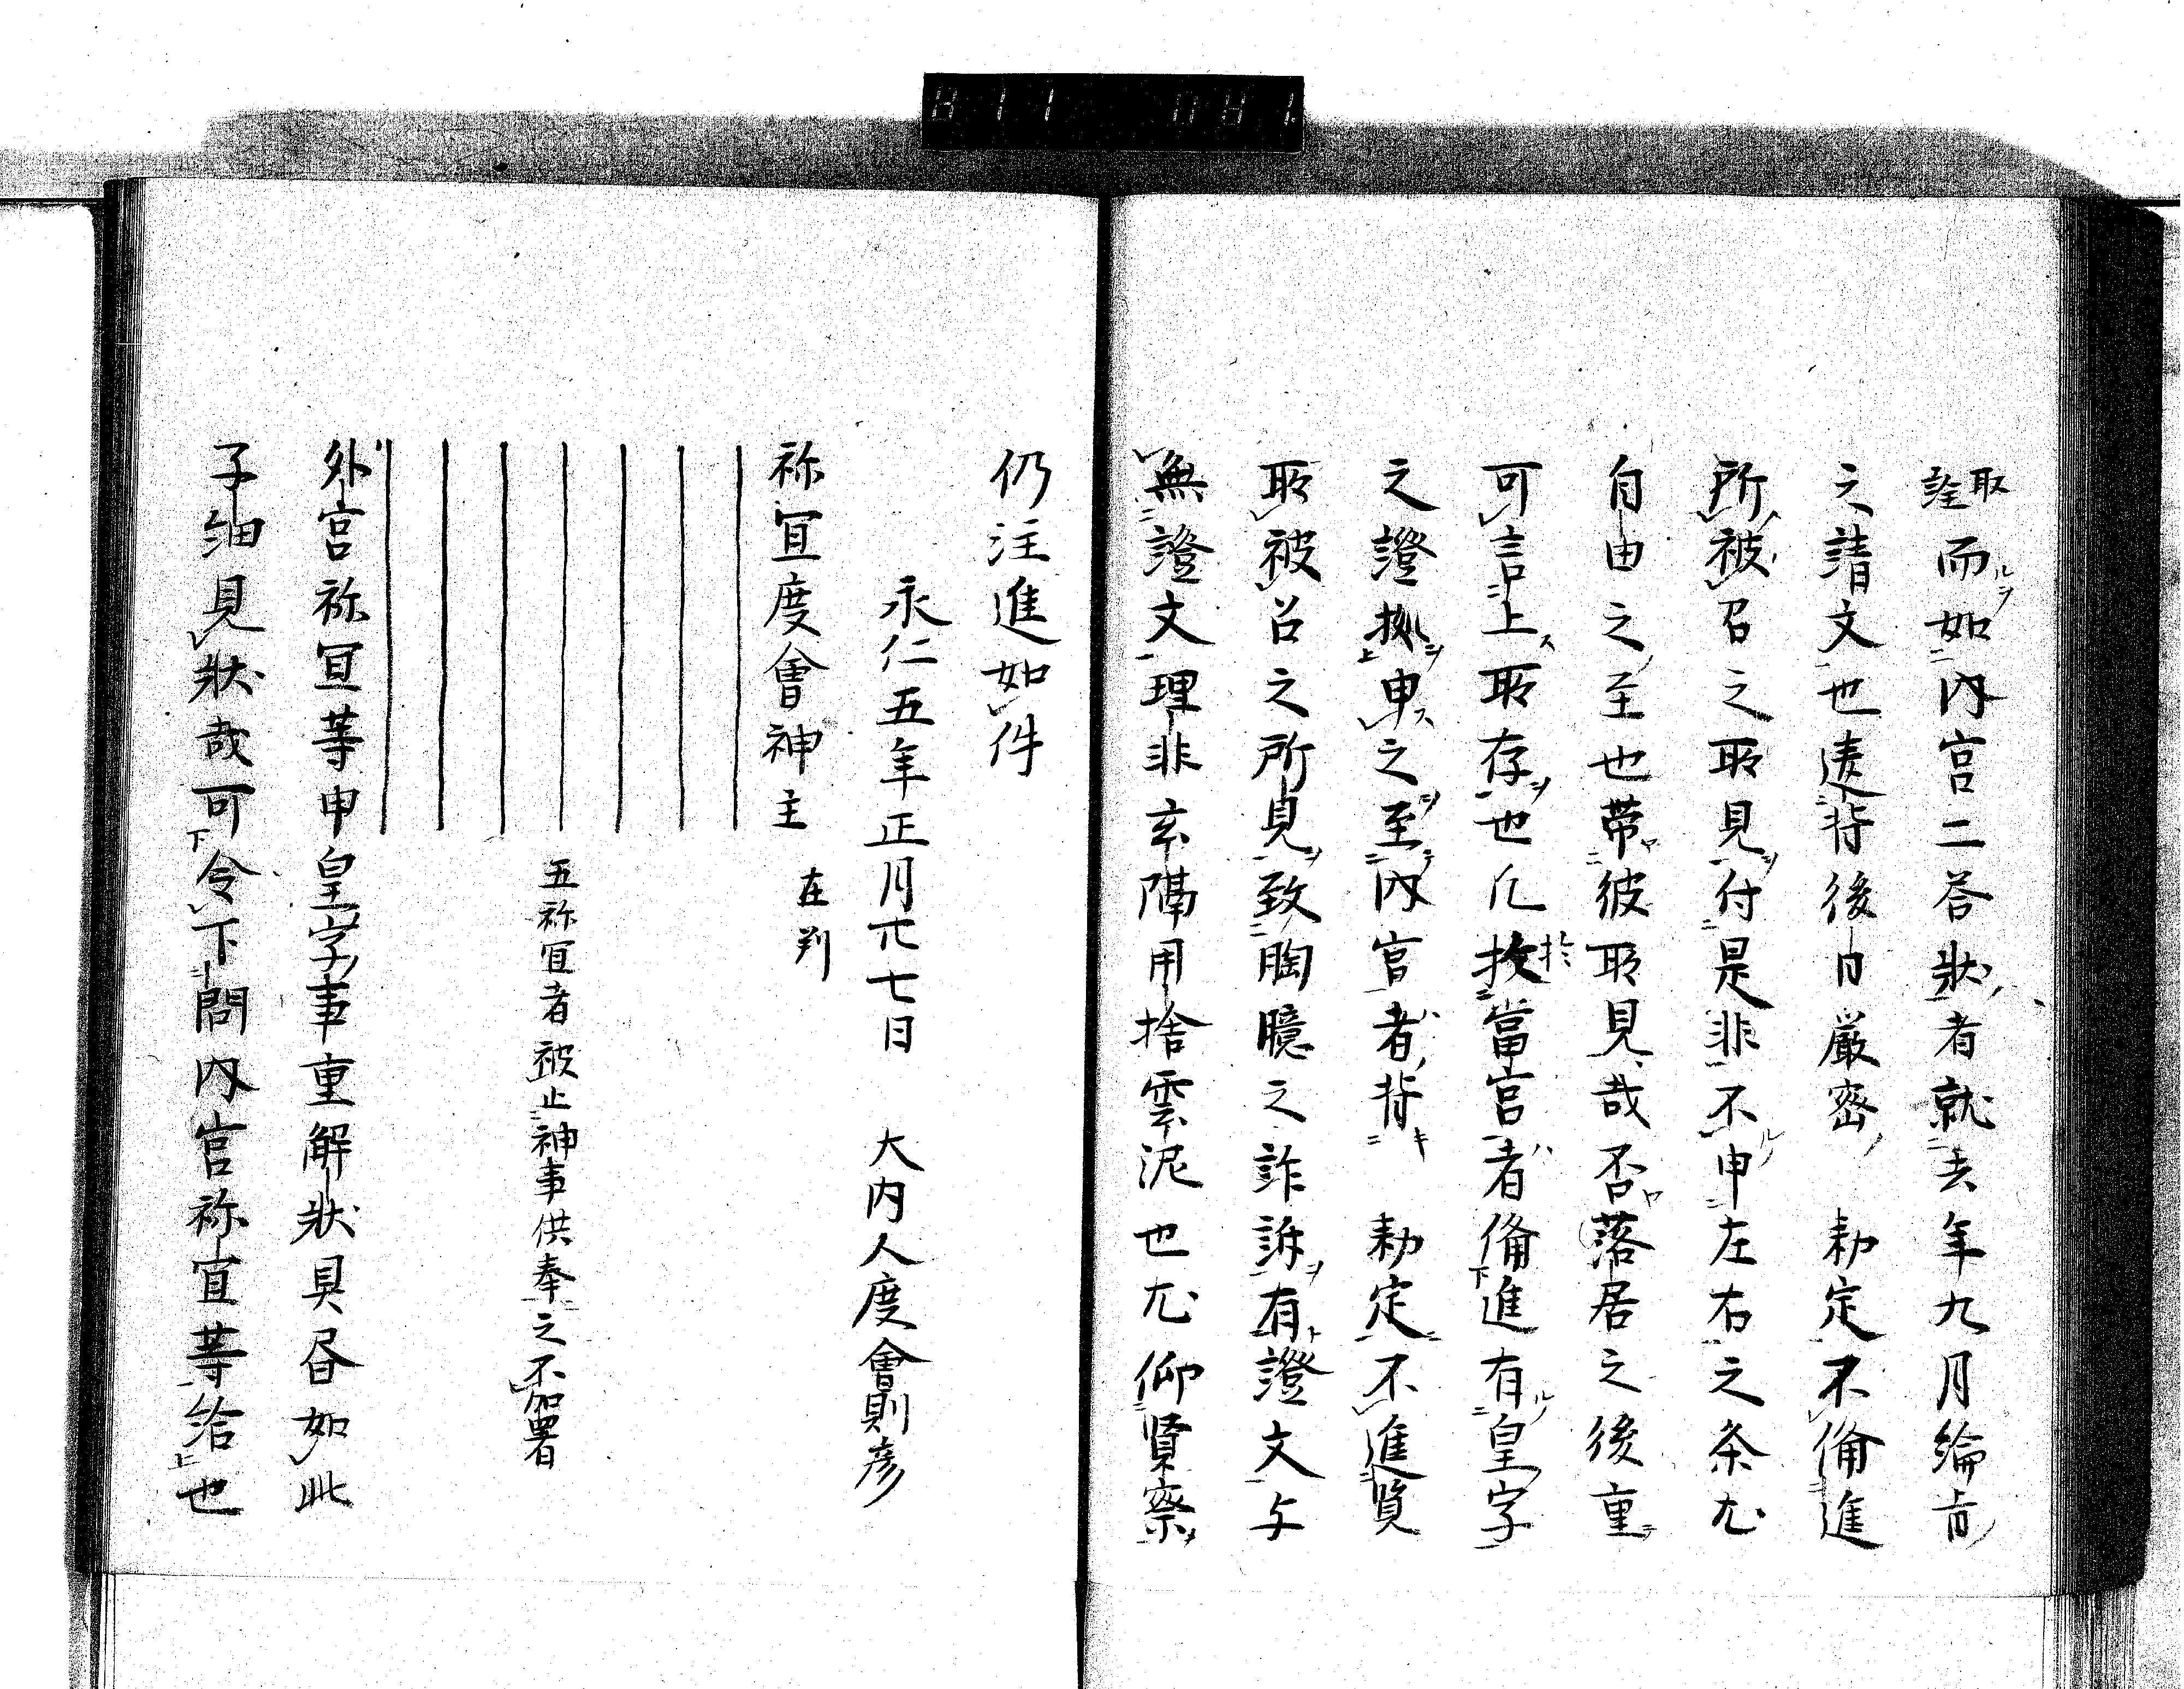 取詮而如内宮二答状者就去年九月綸旨
之請文也違背後日厳密　勅定不備進
所被召之取見付是非不申左右之条尤
自由之至也帯彼取見哉否落居之後重
可言上取存也凡於當宮者備進有皇字
之證拠申之至内宮者背　勅定不進覧
取被召之所見致胸臆之詐訴有證文与
無證文理非玄隔用捨雲泥也尤仰賢察
仍注進如件
永仁五年正月廿七日　大内人度會則彦
祢宜度會神主　在判
五祢宜者被止神事供奉之不加署
外宮祢宜等申皇字事重解状具書如此
子細見状哉可令下問内宮祢宜等給也